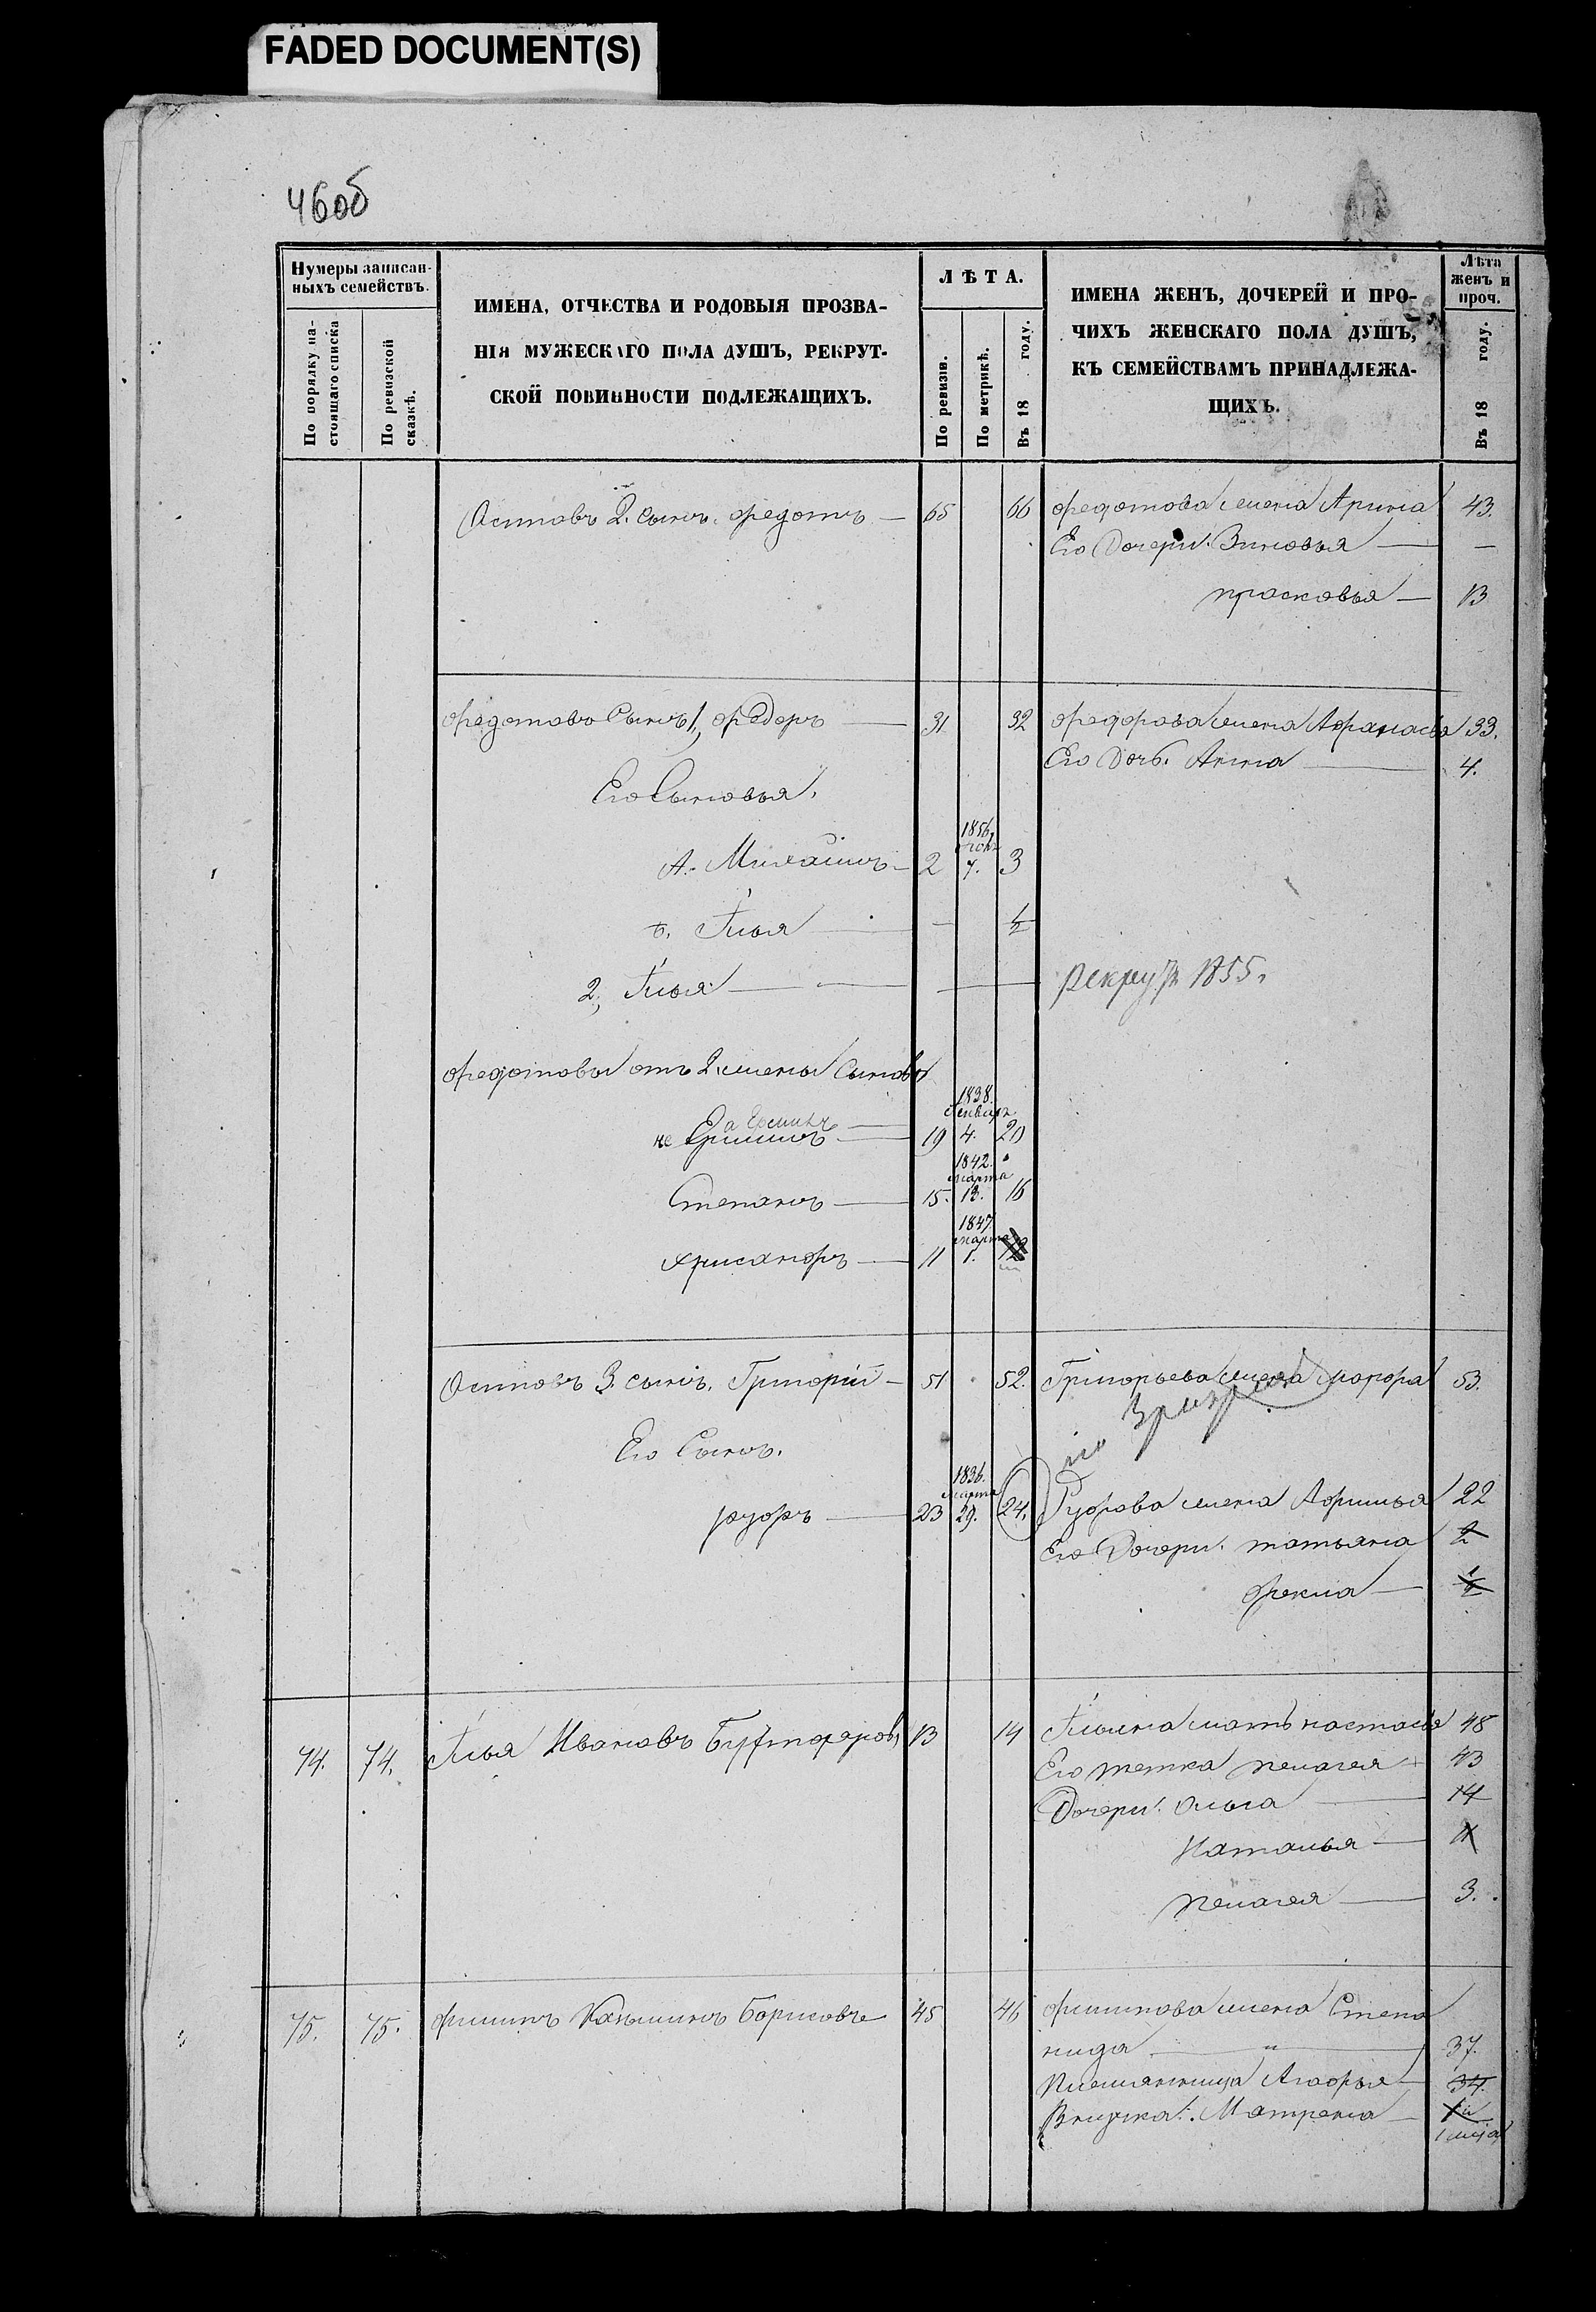 FADED DOCUMENT(S)
46об
Нумеры записан-
ныхъ семействъ.
По порядку на-
стоящаго списка
По ревизской
сказкѣ.
ИМЕНА, ОТЧЕСТВА И РОДОВЫЯ ПРОЗВА-
НІЯ МУЖЕСКАГО ПОЛА ДУШЪ, РЕКРУТ-
СКОЙ ПОВИННОСТИ ПОДЛЕЖАЩИХЪ.
ЛѢТА.
По ревизіи.
По метрикѣ.
Въ 18 году.
ИМЕНА ЖЕНЪ, ДОЧЕРЕЙ И ПРО-
ЧИХЪ ЖЕНСКАГО ПОЛА ДУШЪ,
КЪ СЕМЕЙСТВАМЪ ПРИНАДЛЕЖА-
ЩИХЪ.
Лѣта
женъ и
проч.
Въ 18 году.
Осиповъ 2. сынъ. Федотъ — 65 66 Федотова жена Арина 43.
Его Дочери: Зиновья — —
Прасковья — 13
Федотовъ Сынъ 1, Федоръ — 31 32 Федорова жена Афанасья 33.
Его Дочь. Анна — 4.
Его Сыновья.
1856.
А. Михаилъ — 2 7. 3
б. Илья — — 1/2
2, Илья — — рекрутъ 1855.
Федотовы отъ 2 жены Сыновья
1838.
Генваря
не Ефимъ а Ереминъ — 19 4. 20
1842.
марта
Степанъ — 15. 13. 16
1847.
марта
Хрисанфъ — 11 1. 12
Осиповъ 3. сынъ. Григорій — 51 52. Григорьева жена Марфа 53.
Его Сынъ.
1836.
марта
Фуоръ — 23 29. 24. жена Афимья 22
Его Дочери. Татьяна 2
Фекла — 1/2
74. 74. Илья Ивановъ 13 14 Ильина мать Настасья 48
Его тетка Пелагея 43
Дочери: Ольга — 14
Наталья — 11
Пелагея — 3.
75. 75. Филипъ Борисовъ 45 46 Филипова жена Степа
нида — " — 37.
Племянница Агафья — 34.
Внучка: Матрена —